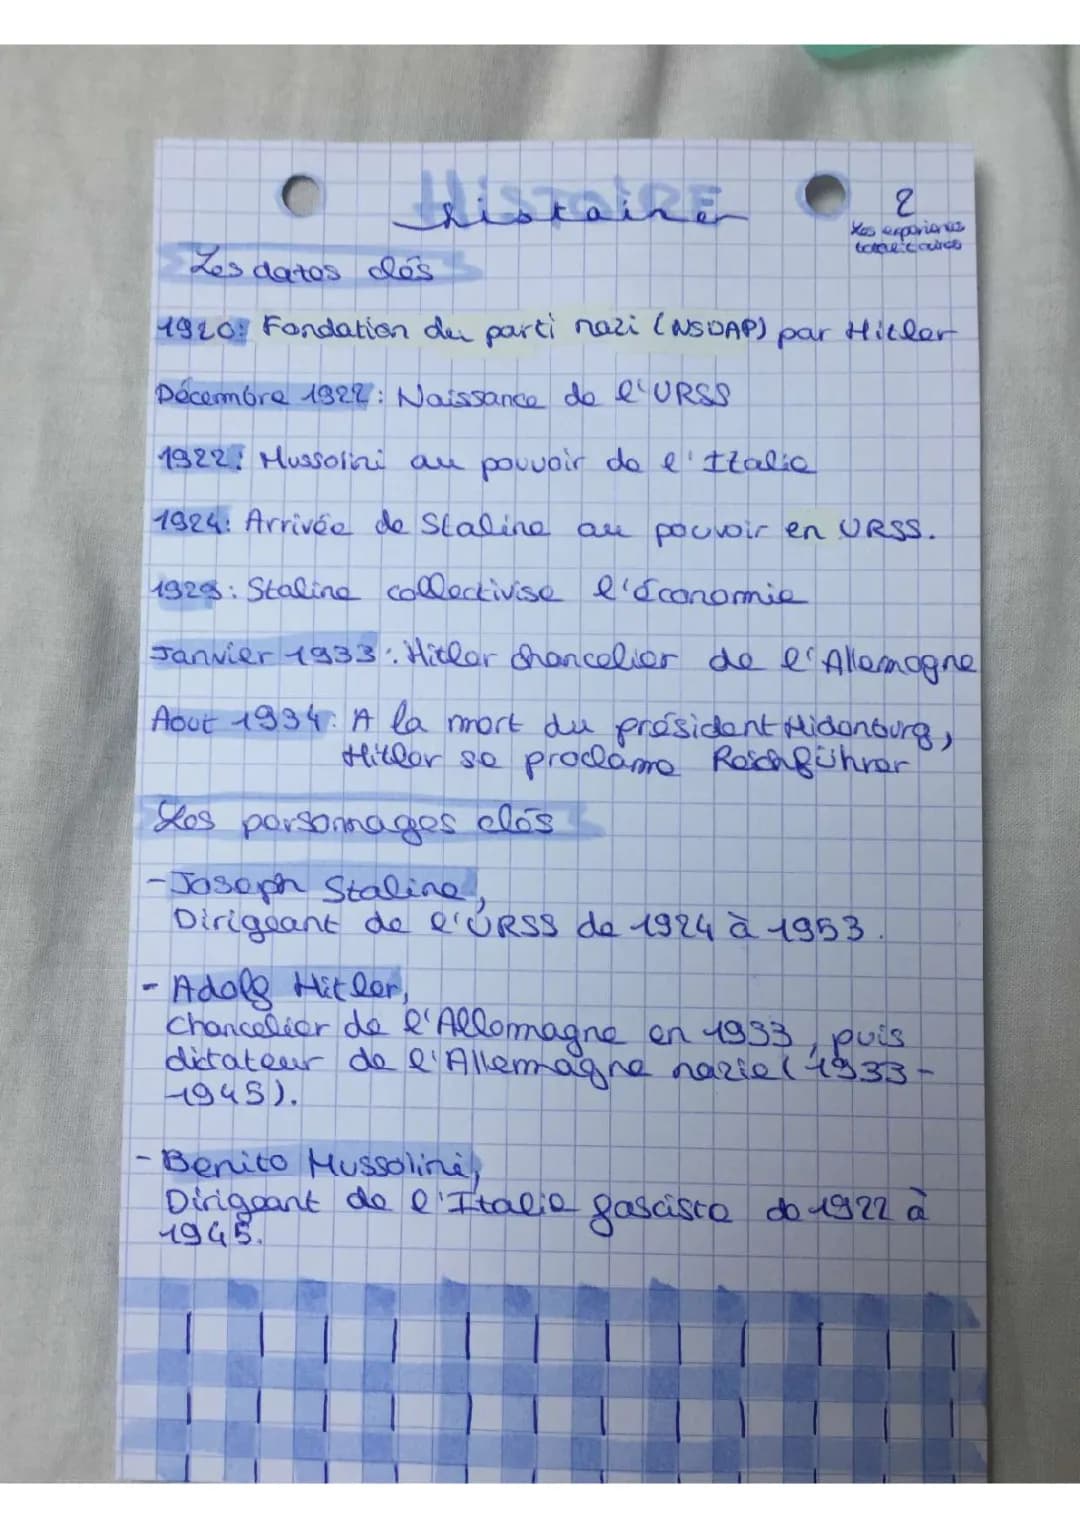 Histoire
2
Les expériences
totalitaires
Les dates clés
1920: Fondation du parti nazi (NSDAP) par Hitler
Décembre 1922: Naissance de l'URSS
1922: Mussolini au pouvoir de l'Italie
1924: Arrivée de Staline au pouvoir en URSS.
1929: Staline collectivise l'économie
Janvier 1933: Hitler chancelier de l'Allemagne
Aout 1934: A la mort du président Hidenburg,
Hitler se proclame Reichführer
Les personnages clés
-Joseph Staline,
Dirigeant de l'URSS de 1924 à 1953.
- Adolf Hitler,
Chancelier de l'Allemagne en 1933, puis
dictateur de l'Allemagne nazie (1933-
1945).
- Benito Mussolini,
Dirigeant de l'Italie fasciste de 1922 à
1945.